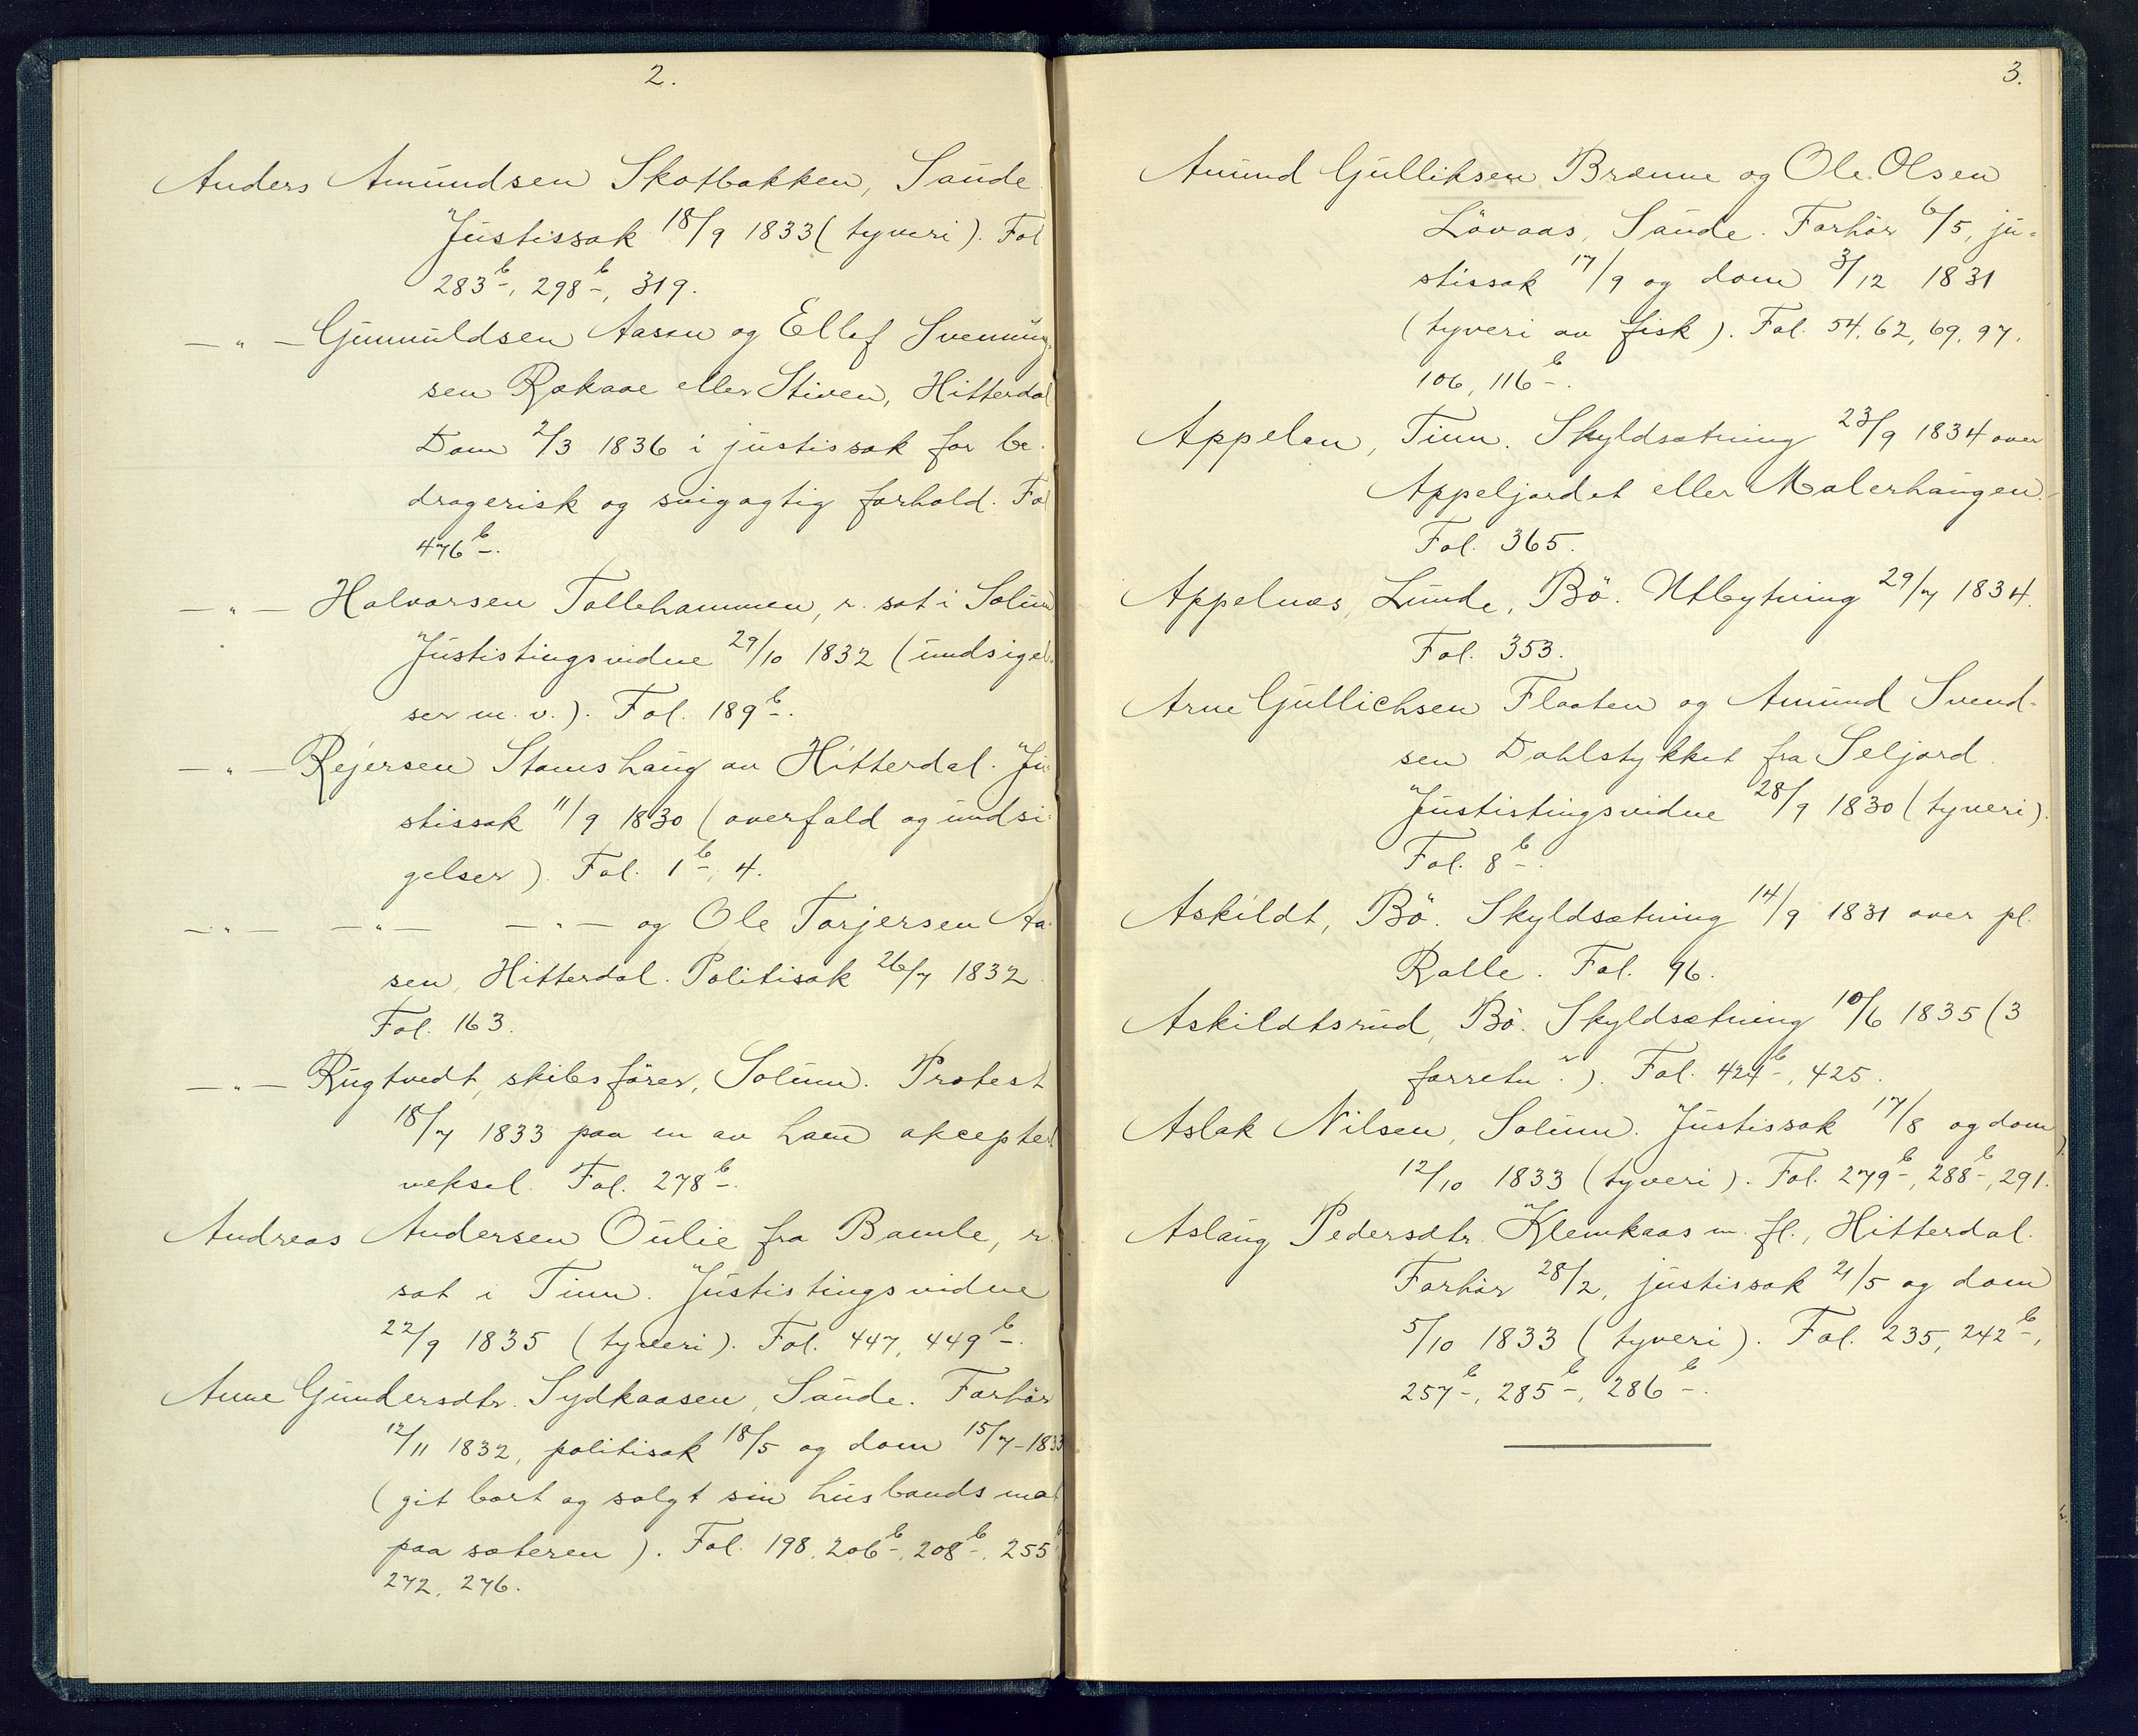 2.
Anders Amundsen Skotbakken, Saude
Justissak 18/9 1833 (tyveri). Fol
283b, 298b, 319.
— „ — Gunnuldsen Aasen og Ellef Svennung-
sen Rokaae eller Stiven, Hitterdal
Dom 2/3 1836 i justissak for be-
dragerisk og svigagtig forhold. Fol
476b.
— „ — Halvorsen Tollehammen, r. sat i Solum
Justistingsvidne 29/10 1832 (undsigel-
ser m. v.). Fol. 189b.
— „ — Rejersen Stamshaug av Hitterdal. Ju-
stissak 11/9 1830 (overfald og undsi-
gelser). Fol. 1b, 4.
— „ — — „ — — „ — og Ole Torjersen Aa-
sen, Hitterdal. Politisak 26/7 1832
Fol. 163.
— „ — Rugtvedt, skibsförer, Solum. Protest
18/7 1833 paa en av ham aksepte
veksel. Fol. 278b.
Andreas Andersen Oulie fra Bamle, r.
sat i Tinn. Justistingsvidne
22/9 1835 (tyveri). Fol. 447, 449b.
Anne Gundersdtr. Sydkaasen, Saude. Forhör
12/11 1832, politisak 18/5 og dom 15/7-1833
(git bort og solgt sin husbonds mat
paa sæteren). Fol. 198, 206b, 208b, 255
272, 276.
3.
Amund Gulliksen Brænne og Ole Olsen
Lövaas, Saude. Forhör 6/5, ju-
stissak 17/9 og dom 3/12 1831
(tyveri av fisk). Fol. 54, 62, 69, 97,
106, 116b.
Appelen, Tinn. Skyldsætning 23/9 1834 over
Appeljordet eller Malerhaugen.
Fol. 365.
Appelnæs, Lunde, Bö. Utbytning 29/7 1834.
Fol. 353.
Arne Gullichsen Flaaten og Amund Svend-
sen Dahlstykket fra Seljord.
Justistingsvidne 28/9 1830 (tyveri).
Fol. 8b.
Askildt, Bö. Skyldsætning 14/9 1831 over pl.
Ralle. Fol. 96.
Askildtsrud, Bö. Skyldsætning 10/6 1835 (3
forretn.r). Fol. 424b, 425.
Aslak Nilsen, Solum. Justissak 17/8 og dom
12/10 1833 (tyveri). Fol. 279b, 288b, 291.
Aslaug Pedersdtr. Klemkaas m. fl., Hitterdal.
Forhör 28/2, justissak 21/5 og dom
5/10 1833 (tyveri). Fol. 235, 242b,
257b, 285b, 286b.